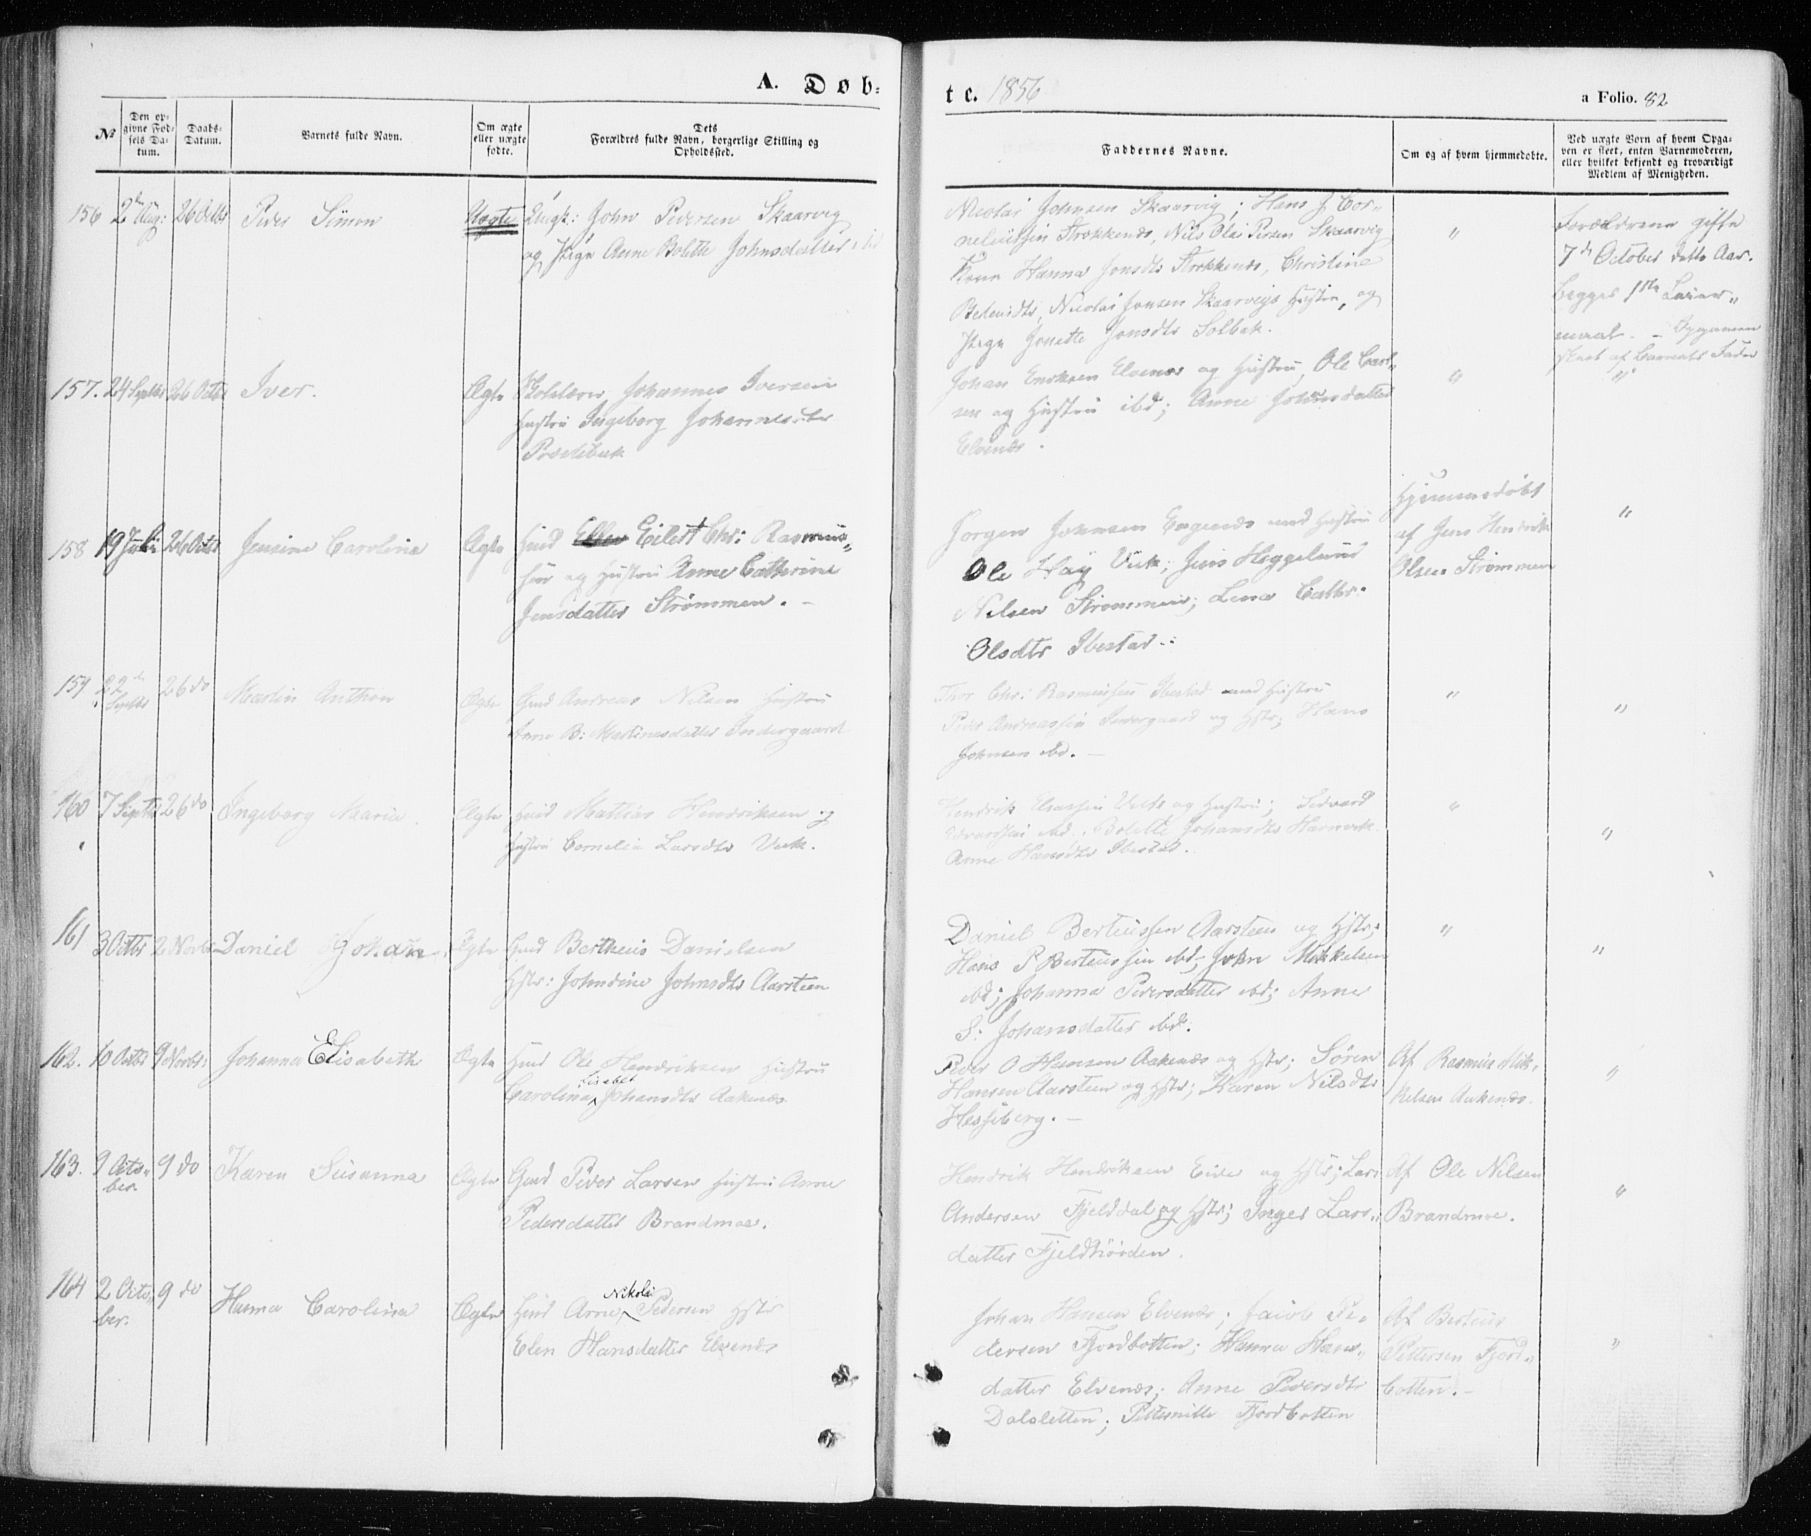 A. Døb-
te. 1856
a Folio. 82
No
Den op-
givne Fød-
sels Da-
tum.
Daabs-
Datum.
Barnets fulde Navn.
Om ægte
eller uægte
fødte.
Dets
Forældres fulde Navn, borgerlige Stilling og
Opholdssted.
Faddernes Navne.
Om og af hvem hjemmedøbt.
Ved uægte Børn af hvem Opga-
ven er skeet, enten Barnemoderen,
eller hvilket bekjendt og troværdigt
Medlem af Menigheden.
156 2 Aug: 26 Octbr Peder Simon Uægte Ungk: John Pedersen Skaarvig
og Pige Anne Bolette Johnsdatter ibd
Nicolai Johnsen Skaarvig; Hans J. Cor-
neliussen Strokkenæs, Nils Olai Persen Skaarvig
Kone Hanna Jonsdtr Strokkenæs, Christine
Nicolai Jonsen Skaarvigs Hustru, og
Pige Jonette Jonsdtr Solbak.
"
Forældrene gifte
7de October dette Aar.
begges 1ste Leier-
maal. - Opgaven
skeet af Barnets Fader
157. 24 Septbr 26 Octbr Iver. Ægte Skolelærer Johannes Iversen
Hustru Ingeborg Johannesdtr
Johan Eriksen Elvenæs og Hustru, Ole Carl-
sen og Hustru ibd; Anne Johnsdatter
Elvenæs.
" "
158 19 Juli 26 Octbr Jensine Carolina Ægte Gmd Eilert Chr: Rasmus-
sen og Hustru Anne Catherine
Jensdatter Strømmen. -
Jørgen Johnsen Engenæs med Hustru
Ole Høy Vik; Jens Heggelund
Nilsen Strømmen; Lena Cathr.
Olsdtr Ibestad.
Hjemmedøbt
af Jens Hendrik
Olsen Strømmen
"
159 22de Septbr 26 do Martin Anthon Ægte Gmd Andreas Nilsen Hustru
Anne B: Martinusdatter Indergaard
Thor Chr: Rasmussen Ibestad med Hustru
Peder Andreassen Indergaard og Hstr; Hans
Johnsen ibd. -
" "
160 7 Septbr 26 do Ingeborg Maria. Ægte Gmd Mathias Hendriksen og
Hustru Cornelia Larsdtr Vik.
Hendrik og Hustru; Edvard
ibd. Bolette Johansdtr Hamnvik
Anne Hansdtr Ibestad.
" "
161 3 Octbr 2 Novbr Daniel Johan Ægte Gmd Bertheus Danielsen
Hstr: Johndine Johnsdtr Aarsteen
Daniel Berteussen Aarsteen og Hstr.
Hans P Berteussen ibd; John Mikkelsen
ibd; Johanna Pedersdatter ibd; Anne
S: Johansdatter ibd.
" "
162. 10 Octbr 9 Novbr: Johanna Elisabeth Ægte Gmd Ole Hendriksen Hustru
Carolina Lisabet Johansdtr Aakenæs
Peder O Hansen Aakenæs og Hstr; Søren
Hansen Aarsteen og Hstr; Karen Nilsdtr
Hesseberg. -
Af Rasmus Mik-
kelsen Aakenæs.
"
163. 9 Octo-
ber. 9 do Karen Susanna Ægte Gmd Peder Larsen Hustru Anne
Pedersdatter Brandmoe.
Hendrik Hendriksen og Hstr; Lars
Andersen Fjelddal og Hstr; Inger Lars-
datter
Af Ole Nilsen
Brandmoe.
"
164 2 Octo-
ber. 9 do Hanna Carolina Ægte Gmd Arne Nikolai Pedersen Hstr
Elen Hansdatter Elvenæs
Johan Hansen Elvenæs; Jacob Pe-
dersen Fjordbotten; Hanna Hans-
datter Elvenæs; Anne Pedersdtr
Dalsletten; Fjordbotten
Af Berteus
Pettersen Fjord-
botten. -
"